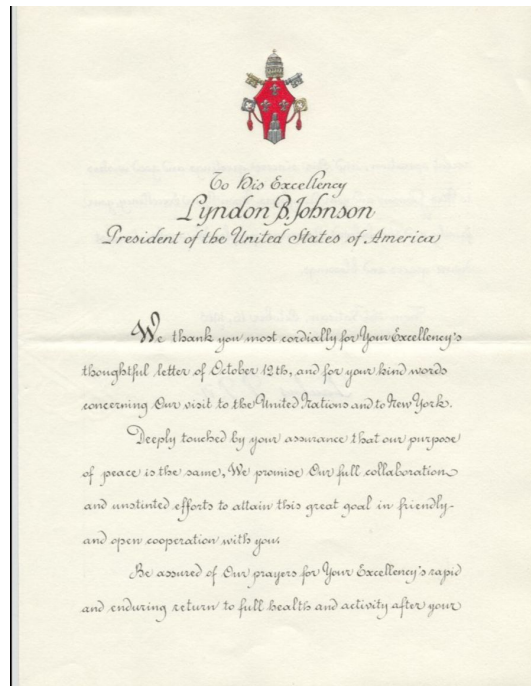 To His Excellency
Lyndon B. Johnson
President of the United States of America
We thank you most cordially for Your Excellency's
thoughtful letter of October 12th, and for your kind words
concerning Our visit to the United Nations and to New York.
Deeply touched by your assurance that our purpose
of peace is the same, We promise Our full collaboration
and unstinted efforts to attain this great goal in friendly
and open cooperation with you.
Be assured of Our prayers for Your Excellency's rapid
and enduring return to full health and activity after your